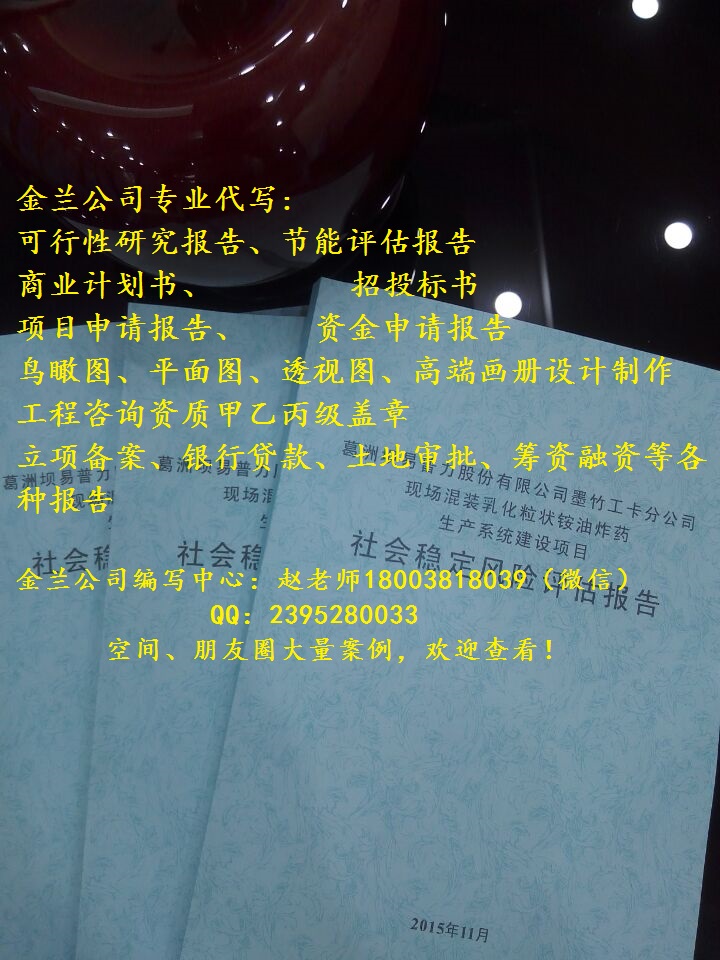 金兰公司专业代写：
可行性研究报告、节能评估报告
商业计划书、 招投标书
项目申请报告、 资金申请报告
鸟瞰图、平面图、透视图、高端画册设计制作
工程咨询资质甲乙丙级盖章
立项备案、银行贷款、土地审批、筹资融资等各
种报告
金兰公司编写中心：赵老师18003818039（微信）
QQ：2395280033
空间、朋友圈大量案例，欢迎查看！
葛洲坝易普力
社会稳
葛洲坝易普力
现场混
社会稳
葛洲坝易普力股份有限公司墨竹工卡分公司
现场混装乳化粒状铵油炸药
生产系统建设项目
社会稳定风险评估报告
2015年11月